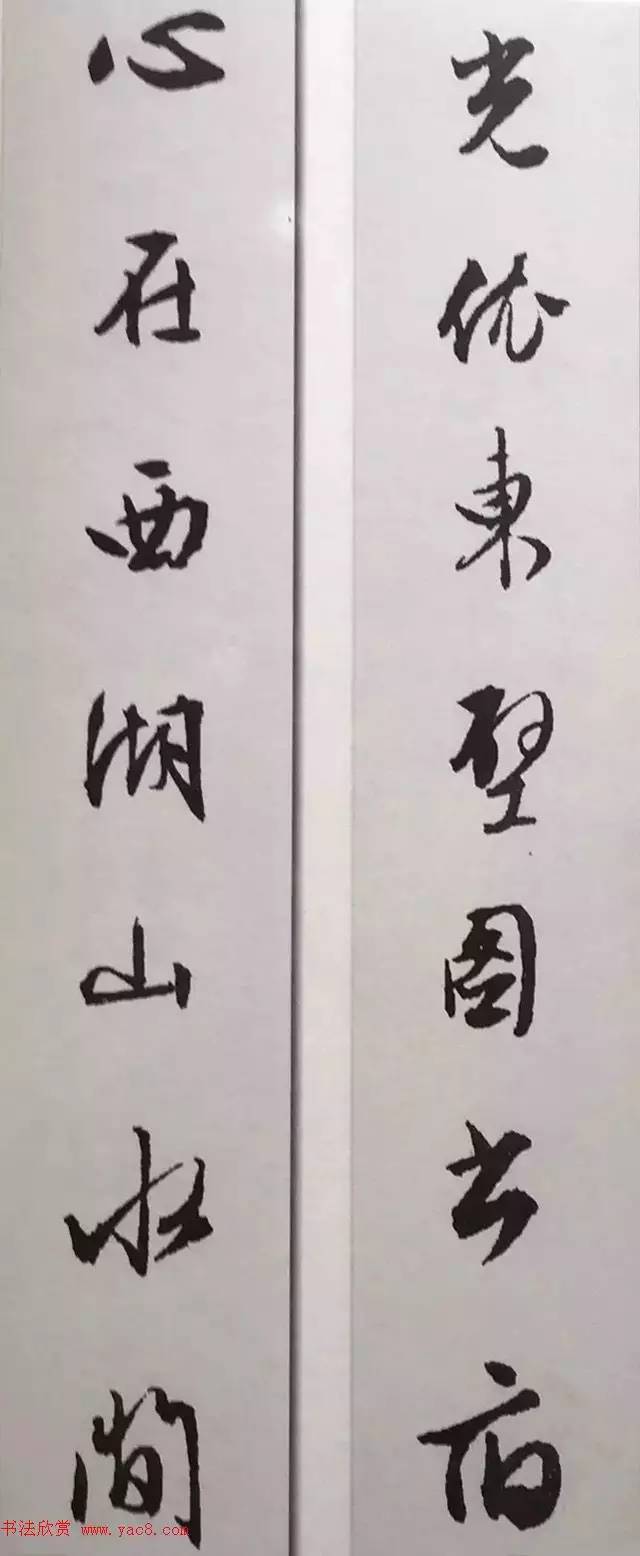 光依東壁圖書府
心在西湖山水間
书法欣赏 www.yac8.com